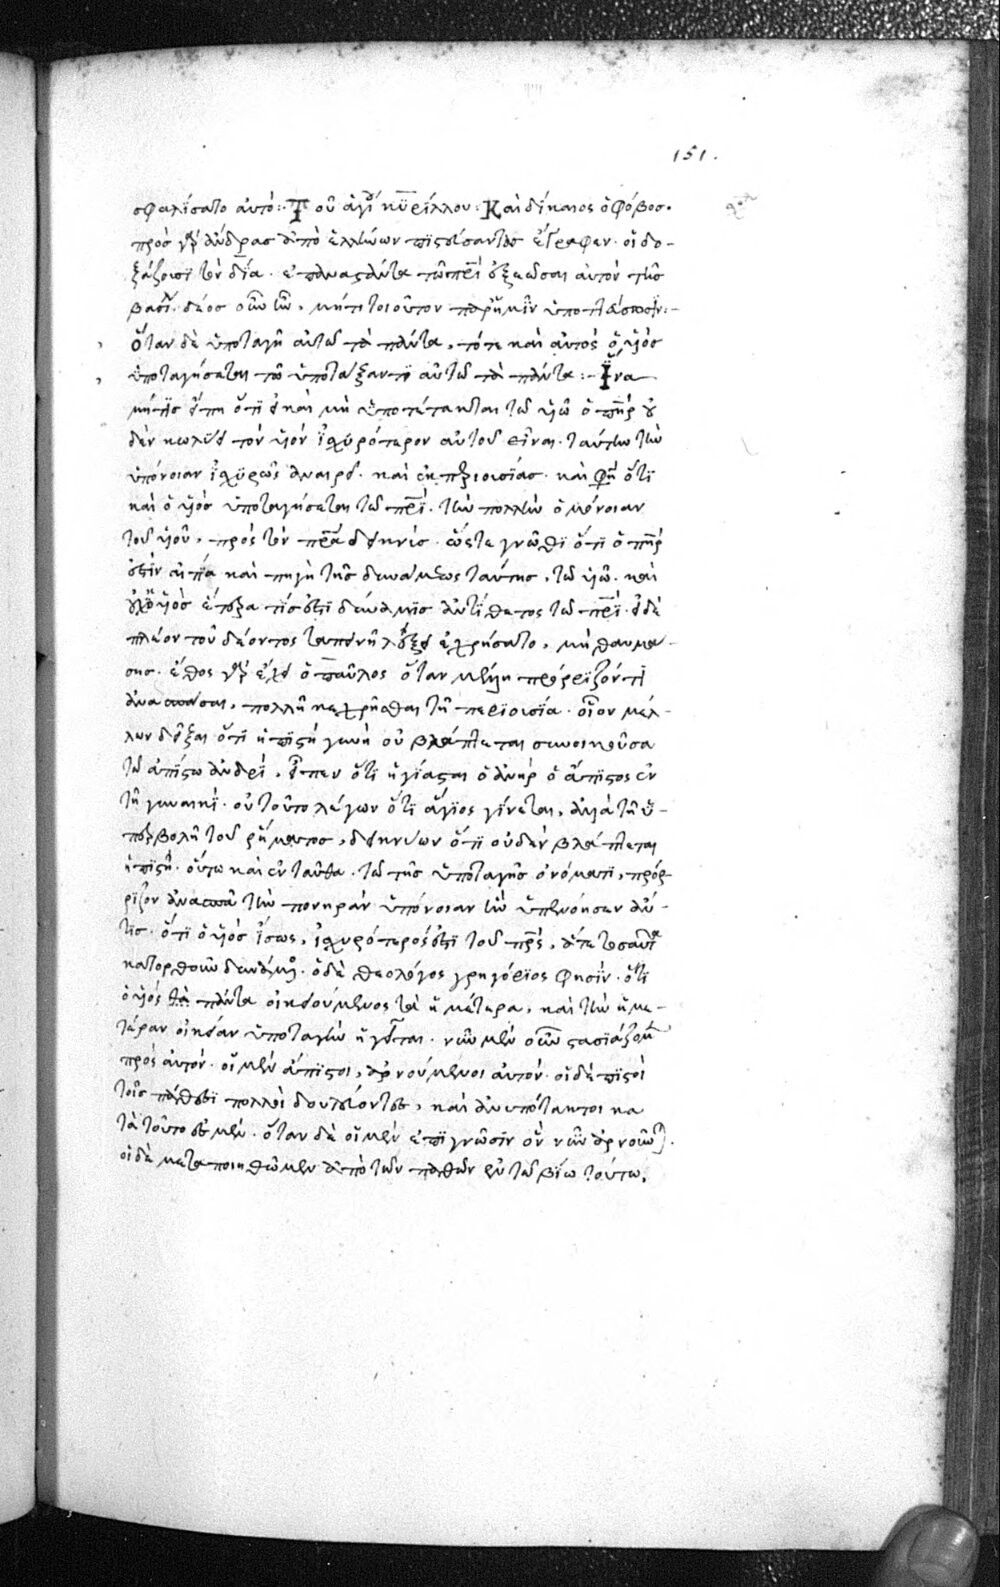 151.
σφαλίσατο αὐτό:· Τοῦ ἁγί κυρίλλου:· Καὶ δίκαιος ὁ φόβος·
πρὸς γὰρ ἄνδρας ἀπὸ ἑλλήνων πιστεύσαντας ἔγραφεν· οἱ δο-
ξάζουσι τὸν δία· ἐπαναστάντα τῶ πρι ἐξεῶσαι αὐτὸν τῆς
βασι· δέος οὖν ἦν, μήτι τοιοῦτον παρ' ἡμῖν ὑποπτεύσωσιν:-
ὅταν δὲ ὑποταγῆ αὐτῶ τὰ πάντα, τότε καὶ αὐτὸς ὁ υἱὸς
ὑποταγήσεται τῶ ὑποτάξαντι αὐτῶ τὰ πάντα:- Ἵνα
μήτις εἴπη ὅτι εἰ καὶ μὴ ὑποτέτακται τῶ υἱῶ ὁ πηρ οὐ
δὲν κωλύει τὸν υἱὸν ἰσχυρότερον αὐτοῦ εἶναι· ταύτην τὴν
ὑπόνοιαν ἰσχυρῶς ἀναιρεῖ· καὶ ἐκ περιουσίας· καὶ φη ὅτι
καὶ ὁ υἱὸς ὑποταγήσεται τῶ πρι· τὴν πολλὴν ὁμόνοιαν
τοῦ υἱοῦ, πρὸς τὸν πρα δεικνύς· ὥστε γνῶθι ὅτι ὁ πηρ
ἐστὶν αἰτία καὶ πηγὴ τῆς δυνάμεως ταύτης, τῶ υἱῶ· καὶ
οὐχ ὁ υἱὸς ἑτέρα τίς ἐστι δύναμις ἀντίθετος τῶ πρι· εἰ δὲ
πλέον τοῦ δέοντος ταπεινῆ λέξει ἐχρήσατο, μὴ θαυμά-
σης· ἔθος γὰρ ἔχει ὁ παῦλος ὅταν μέλλη πρόρριζόν τι
ἀνασπάσαι, πολλῆ κεχρῆσθαι τῆ περιουσία· οἷον μέλ-
λων δεῖξαι ὅτι ἡ πιστὴ γυνὴ οὐ βλάπτεται συνοικοῦσα
τῶ ἀπίστω ἀνδρί, εἶπεν ὅτι ἡγίασται ὁ ἀνὴρ ὁ ἄπιστος ἐν
τῆ γυναικί· οὐ τοῦτο λέγων ὅτι ἅγιος γίνεται, ἀλλὰ τῆ ὑ-
περβολῆ τοῦ ῥήματος, δεικνύων ὅτι οὐδὲν βλάπτεται
ἡ πιστή· οὕτω καὶ ἐνταῦθα· τῶ τῆς ὑποταγῆς ὀνόματι, πρόρ-
ριζον ἀνασπᾶ τὴν πονηρὰν ὑπόνοιαν ἣν ὑπενόησεν ἄν-
τις· ὅτι ὁ υἱὸς ἴσως, ἰσχυρότερός ἐστι τοῦ πρς, ἅτε τοσαῦτα
κατορθοῦν δυνάμενος· ὁ δὲ θεολόγος γρηγόριος φησίν· ὅτι
ὁ υἱὸς τὰ πάντα οἰκειούμενος τὰ ἡμέτερα, καὶ τὴν ἡμε-
τέραν οἰκείαν ὑποταγὴν ἡγεῖται· νῦν μὲν οὖν στασιάζομεν
πρὸς αὐτόν· οἱ μὲν ἄπιστοι, ἀρνούμενοι αὐτόν· οἱ δὲ πιστοὶ
τοῖς πάθεσι πολλοὶ δουλεύοντες, καὶ ἀνυπότακτοι κα
τὰ τοῦτο ἐσμέν· ὅταν δὲ οἱ μὲν ἐπιγνῶσιν ὃν νῦν ἀρνοῦνται·
οἱ δὲ μεταποιηθῶμεν ἀπὸ τῶν παθῶν ἐν τῶ βίω τούτω,